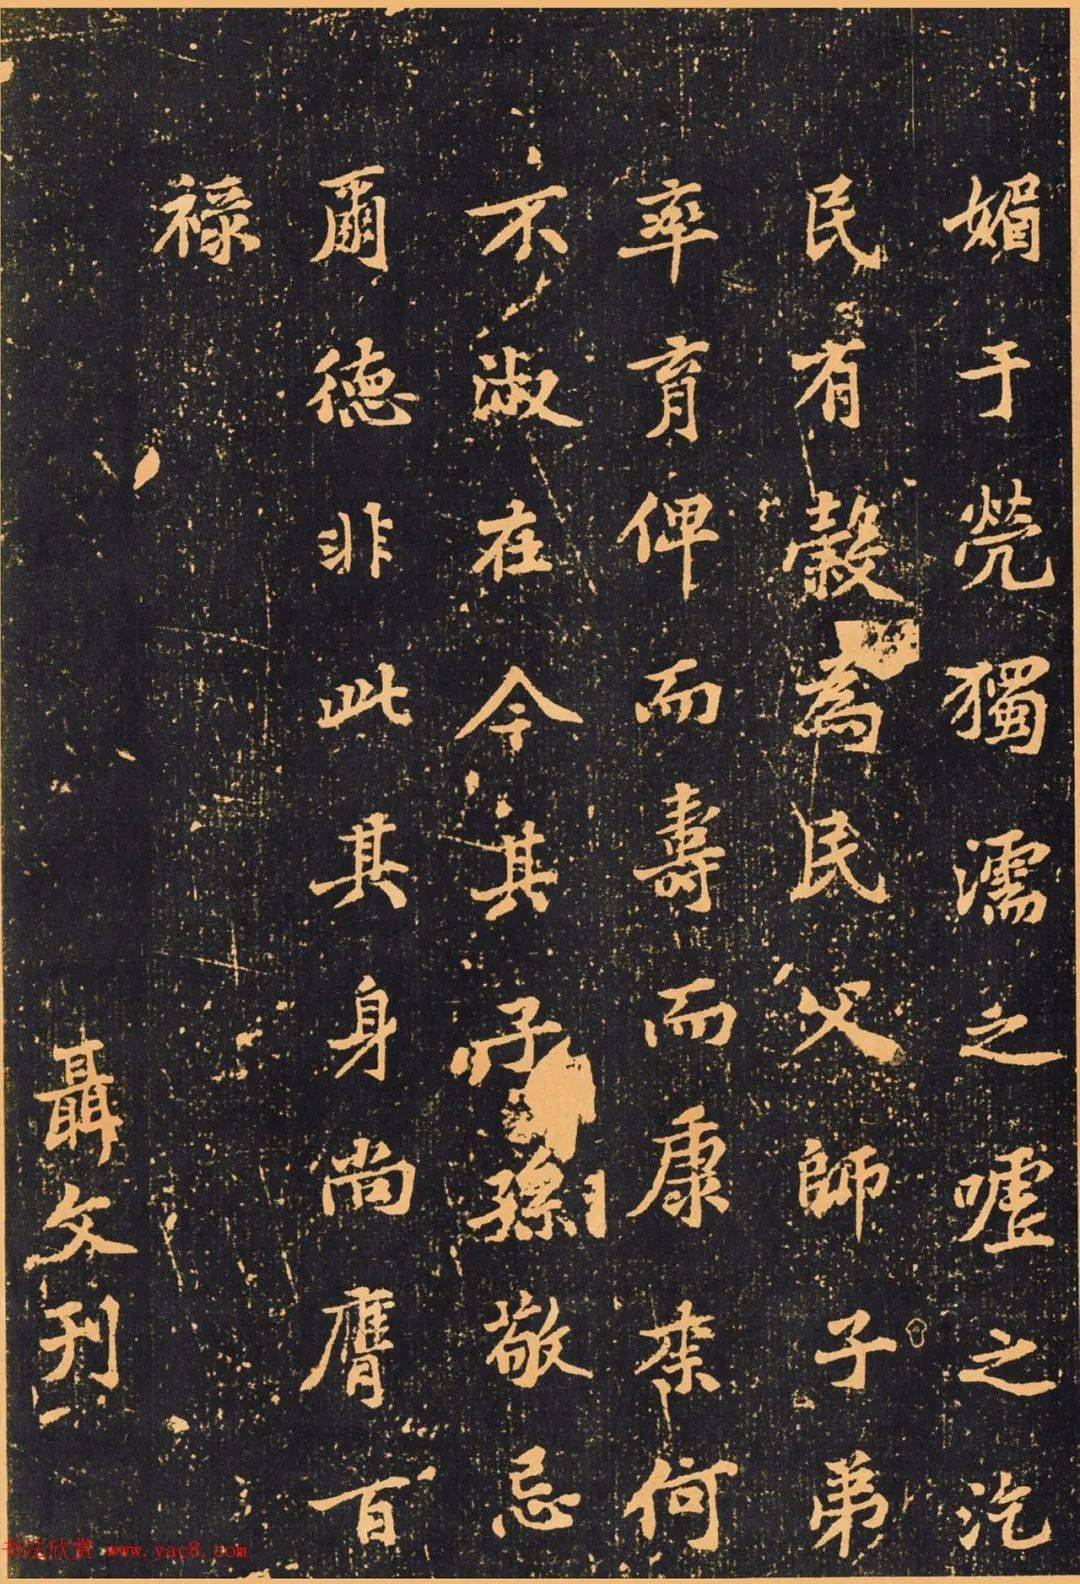 媚于煢獨濡之噓之汔
民有穀為民父師子弟
率育俾而壽而康柰何
不淑在今其子孫敬忌
爾德非此其身尚膺百
祿
聶文刊
书法欣赏 www.yac8.com